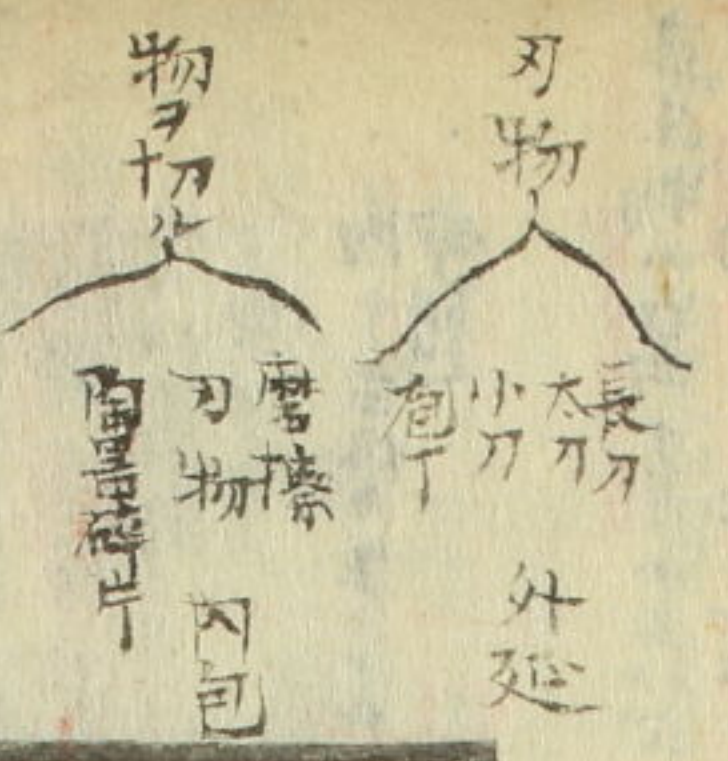 刃物
長刀
太刀
小刀
庖丁
外延
物ヲ切ル
磨擦
刃物
陶器碎片
内包